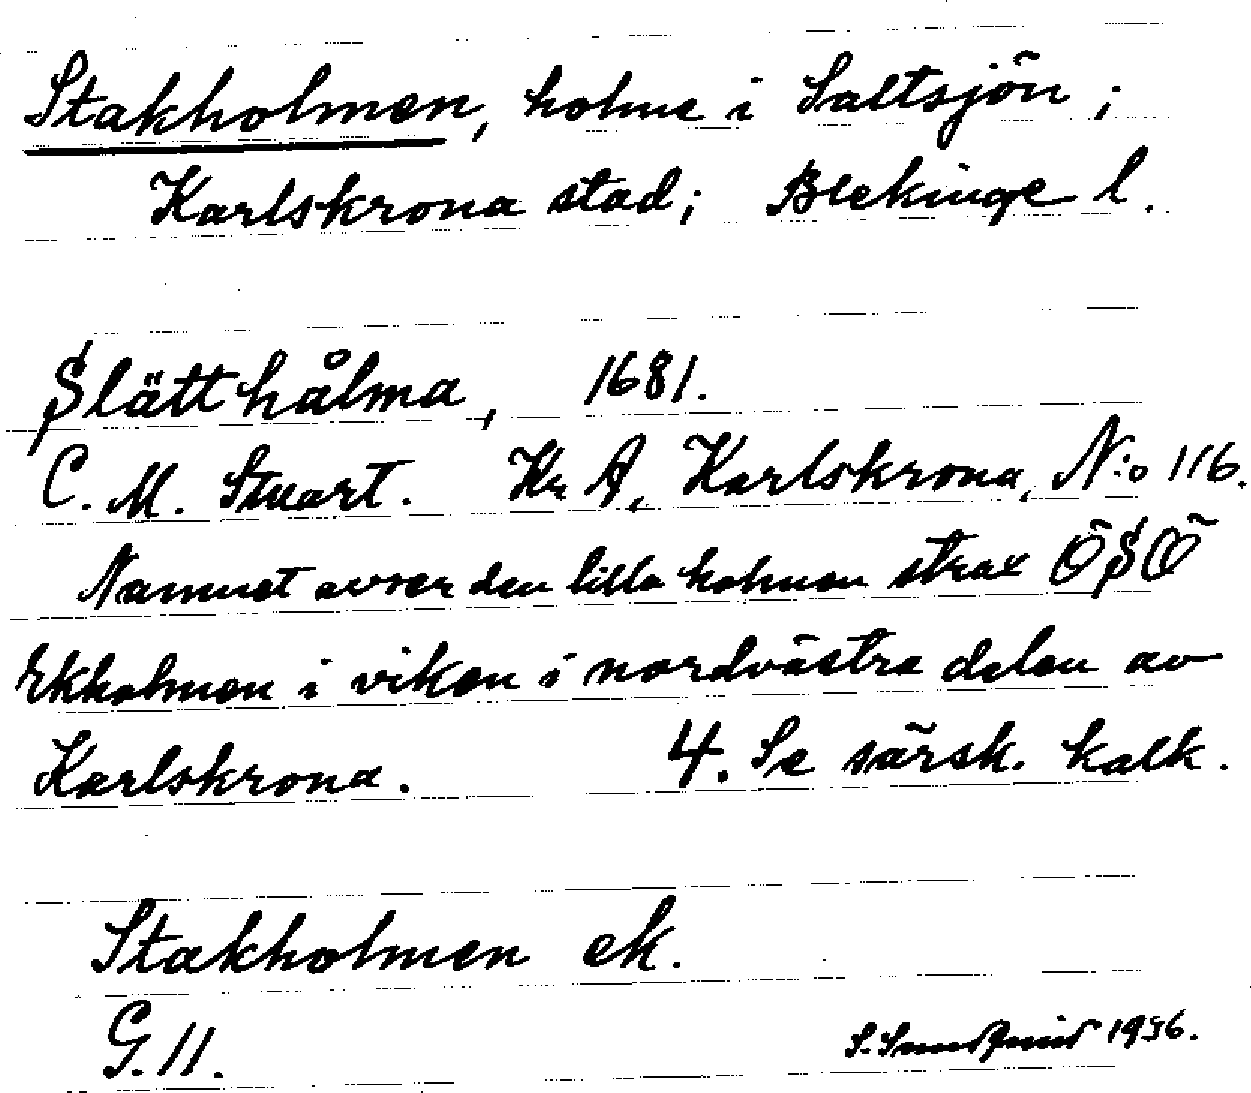 Stakholmen, holme i Saltsjön;
Karlskrona stad; Blekinge l.
Slätthålma, 1681.
C. M. Stuart. Kr A, Karlskrona, N:o 116.
Namnet avser den lilla holmen strax ÖSÖ
Ekholmen i viken i nordvästra delen av
Karlskrona. 4. Se särsk. kalk.
Stakholmen ek.
G. 11. S. Sundquist 1936.